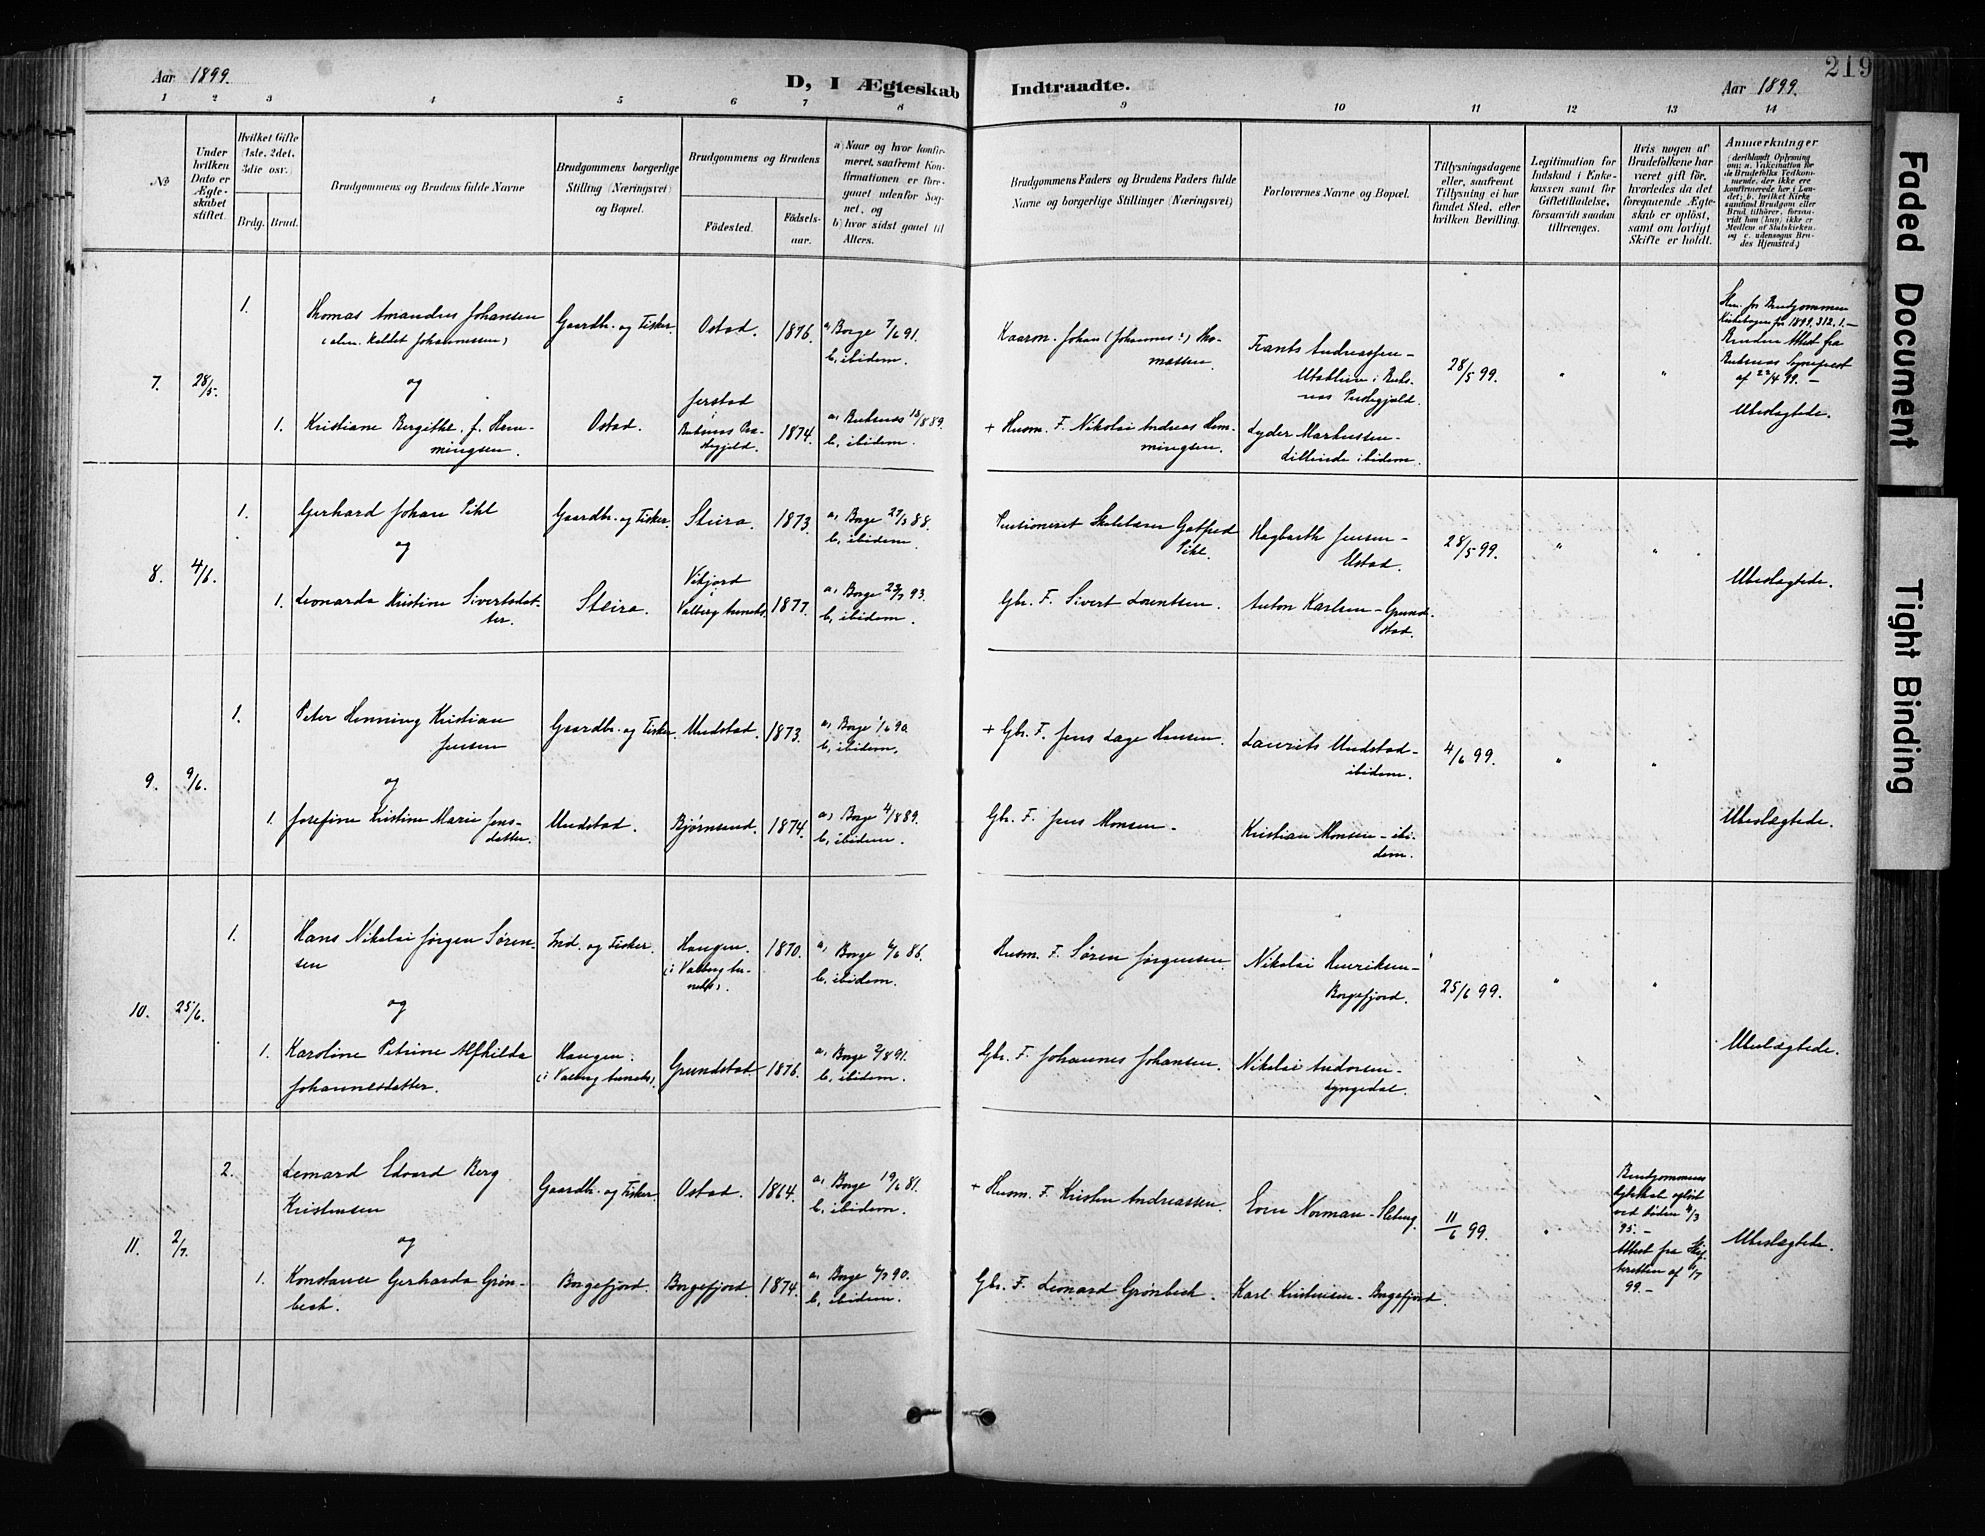 Aar 1899.
D, I Ægteskab Indtraadte.
Aar 1899.
219
1 2 3 4 5 6 7 8 9 10 11 12 13 14
No
Under hvilken Dato er Ægteskabet stiftet.
Hvilket Gifte (1ste, 2det, 3die osv.)
Brdg. Brud.
Brudgommens og Brudens fulde Navne
Brudgommens borgerlige Stilling (Næringsvei) og Bopæl.
Brudgommens og Brudens
Födested.
Födsels-aar.
a) Naar og hvor konfirmeret, saafremt Konfirmationen er foregaaet udenfor Sognet, og
b) hvor sidst gaaet til Alters.
Brudgommens Faders og Brudens Faders fulde Navne og borgerlige Stillinger (Næringsvei)
Forlovernes Navne og Bopæl.
Tillysningsdagene eller, saafremt Tillysning ei har fundet Sted, efter hvilken Bevilling.
Legitimation for Indskud i Enkekassen samt for Giftetilladelse, forsaavidt saadan tiltrænges.
Hvis nogen af Brudefolkene har været gift før, hvorledes da det foregaaende Ægteskab er oplöst, samt om lovligt Skifte er holdt.
Anmærkninger
(deriblandt Oplysning om: a. Vakcination for de Brudefolks Vedkommende, der ikke ere konfirmerede her i Landet; b. hvilket Kirkesamfund Brudgom eller Brud tilhörer, forsaavidt han (hun) ikke er Medlem af Statskirken, og c. udensogns Brudes Hjemsted.)
7. 28/5.
1.
Thomas Amandus Johansen
(alm. kaldet Johannessen)
og
1. Kristiane Bergitte, f. Hemmingsen.
Gaardbr. og Fisker
Ostad.
Ostad. 1876.
Jerstad i Buksnes Præstegjeld. 1874.
a, Borge 7/6 91.
b, ibidem.
a, Buksnes 18/8 89.
b, ibidem.
Kaarm. Johan (Johannes?) Thomassen.
+ Husm. F. Nikolai Andreas Hemmingsen.
Frants Andreassen - Utakleiv i Buksnes Prestegjeld.
Lyder Markussen - Lilleide ibidem.
28/5 99.
" "
Skm. for Brudgommen
Kirkebogen for 1899, 312, 1. -
Brudens Attest fra Buksnes Sognepræst af 22/4 99. -
Ubeslægtede.
8. 4/6.
1. Gerhard Johan Pihl
og
1. Leonarda Kristine Sivertsdatter.
Gaardbr. og Fisker.
Steira.
Steira. 1873.
Vikjord i Valberg Anneks. 1877.
a, Borge 29/7 88.
b, ibidem.
a, Borge 23/7 93.
b, ibidem.
Pensioneret Skolelærer Gotfred Pihl.
Gbr. F. Sivert Lorentsen.
Hagbarth Jensen - Ustad.
Anton Karlsen - Grundstad.
28/5 99.
" "
Ubeslægtede.
9. 9/6.
1. Peter Henning Kristian Jensen
og
1. Josefine Kristine Marie Jensdatter.
Gaardbr. og Fisker.
Unstad.
Unstad. 1873.
Bjørnsand. 1874.
a, Borge 1/6 90.
b, ibidem.
a, Borge 4/8 89.
b, ibidem.
+ Gbr. F. Jens Lage Hansen.
Gbr. F. Jens Monsen -
Laurits Unstad - ibidem.
Kristian Monsen - ibidem.
4/6 99.
" "
Ubeslægtede.
10. 25/6.
1. Hans Nikolai Jørgen Sørensen
og
1. Karoline Petrine Alfhilda Johannesdatter.
Ind. og Fisker.
Haugen. (i Valberg Anneks)
Haugen (i Valberg Anneks). 1870.
Grundstad. 1876.
a, Borge 6/6 86.
b, ibidem.
a, Borge 2/8 91.
b, ibidem.
Husm. F. Søren Jørgensen.
Gbr. F. Johannes Johansen.
Nikolai Henriksen - Borgefjord.
Nikolai Andorsen - Lyngedal.
25/6 99.
" "
Ubeslægtede.
11. 2/7.
2. Lenard Edvard Berg Kristensen
og
1. Konstance Gerharda Grønbeck.
Gaardbr. og Fisker.
Borgefjord.
Ostad. 1864.
Borgefjord. 1874.
a, Borge 19/6 81.
b, ibidem.
a, Borge 6/7 90.
b, ibidem.
+ Husm. F. Kristen Andreassen.
Gbr. F. Leonard Grønbeck.
Even Norman - Sleberg.
Karl Kristensen - Borgefjord.
11/6 99.
"
Brudgommens Egteskab opløst ved Døden 4/3 95. -
Attest fra Skifteretten af 1/7 99. -
Ubeslægtede.
Faded Document
Tight Binding